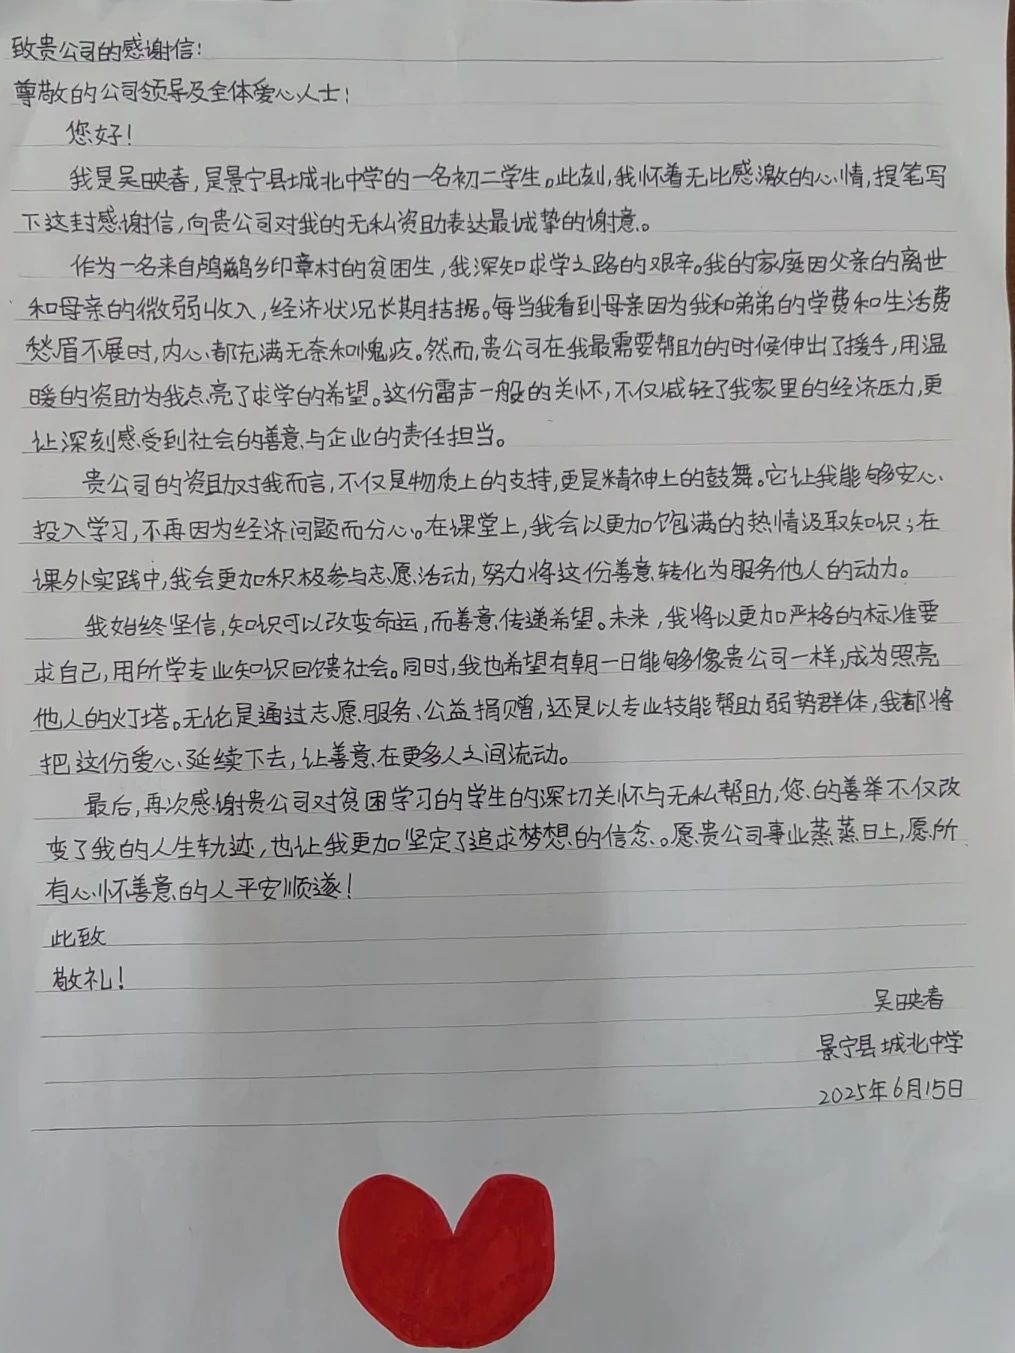 致贵公司的感谢信!
尊敬的公司领导及全体爱心人士!
您好!
我是吴映春,是景宁县城北中学的一名初二学生。此刻,我怀着无比感激的心情,提笔写
下这封感谢信,向贵公司对我的无私资助表达最诚挚的谢意。
作为一名来自鸬鹚乡印章村的贫困生,我深知求学之路的艰辛。我的家庭因父亲的离世
和母亲的微弱收入,经济状况长期拮据。每当我看到母亲因为我和弟弟的学费和生活费
愁眉不展时,内心都充满无奈和愧疚。然而,贵公司在我最需要帮助的时候伸出了援手,用温
暖的资助为我点亮了求学的希望。这份雷声一般的关怀,不仅减轻了我家里的经济压力,更
让深刻感受到社会的善意与企业的责任担当。
贵公司的资助对我而言,不仅是物质上的支持,更是精神上的鼓舞。它让我能够安心
投入学习,不再因为经济问题而分心。在课堂上,我会以更加饱满的热情汲取知识;在
课外实践中,我会更加积极参与志愿活动,努力将这份善意转化为服务他人的动力。
我始终坚信,知识可以改变命运,而善意传递希望。未来,我将以更加严格的标准要
求自己,用所学专业知识回馈社会。同时,我也希望有朝一日能够像贵公司一样,成为照亮
他人的灯塔。无论是通过志愿服务、公益捐赠,还是以专业技能帮助弱势群体,我都将
把这份爱心延续下去,让善意在更多人之间流动。
最后,再次感谢贵公司对贫困学习的学生的深切关怀与无私帮助,您的善举不仅改
变了我的人生轨迹,也让我更加坚定了追求梦想的信念。愿贵公司事业蒸蒸日上,愿所
有心怀善意的人平安顺遂!
此致
敬礼!
吴映春
景宁县城北中学
2025年6月15日